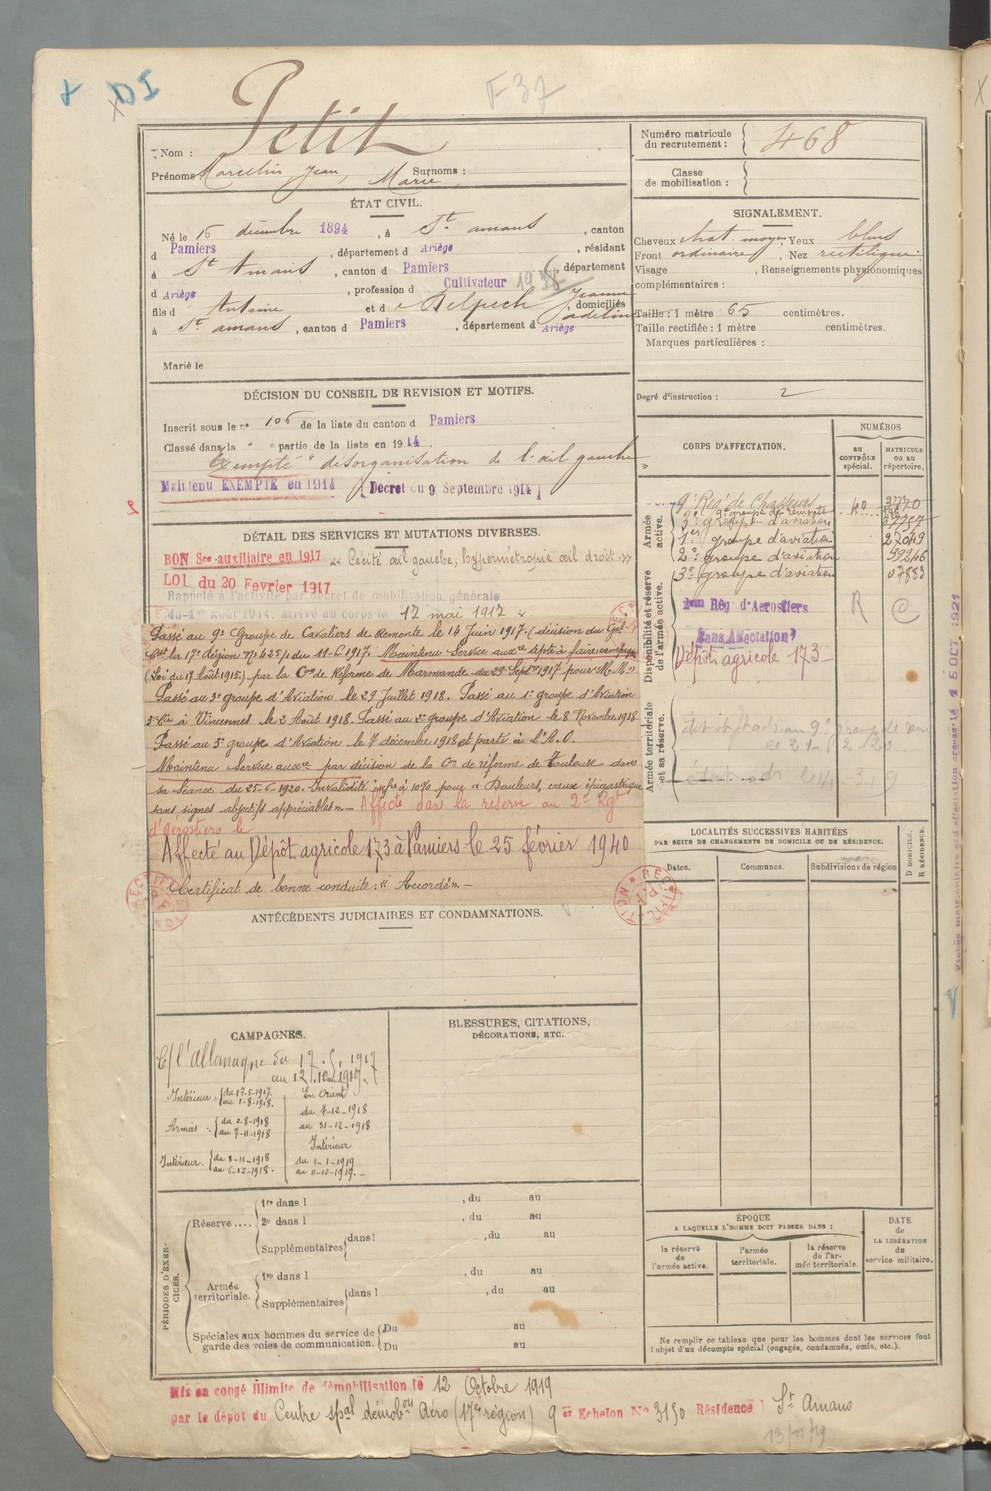 DI
F37
Petit
Nom :
Prénoms Marcellin, Jean, Marie Surnoms :
ÉTAT CIVIL.
Né le 16 décembre 1894, à St. amans, canton
d Pamiers, département d Ariège, résidant
à St Amans, canton d Pamiers, département
d Ariège, profession d Cultivateur
fils d Antoine et d e Delpech Jeanne, domiciliés
à St. amans, canton d Pamiers, département d Ariège
Marié le
Numéro matricule du recrutement : 468
Classe de mobilisation :
SIGNALEMENT.
Cheveux chat. moyen, Yeux bleus
Front ordinaire, Nez rectiligne
Visage , Renseignements physionomiques
complémentaires :
Taille : 1 mètre 65 centimètres.
Taille rectifiée : 1 mètre centimètres.
Marques particulières :
Degré d'instruction : 2
DÉCISION DU CONSEIL DE REVISION ET MOTIFS.
Inscrit sous le n° 106 de la liste du canton d Pamiers
Classé dans la " " partie de la liste en 1914.
Exempté " désorganisation de l'œil gauche
Maintenu EXEMPTÉ en 1914 (Decret du 9 Septembre 1914)
DÉTAIL DES SERVICES ET MUTATIONS DIVERSES.
BON Sce auxiliaire en 1917 « Cécité œil gauche, hypermétropie œil droit »
LOI du 20 Fevrier 1917
Rappelé à l'activité par décret de mobilisation générale
du 1er Août 1914. arrivé au corps le 17 mai 1917
Passé au 9e Groupe de Cavaliers de Remonte le 14 Juin 1917. (décision du Gal
Cdt la 17e Région N° 425/1 du 11-6-1917. Maintenu Service auxre apte à faire campagne
(Loi du 17 Août 1915) par la Con de Réforme de Marmande du 29 Septbre 1917 pour "M.M."
Passé au 3e groupe d'Aviation le 29 Juillet 1918. Passé au 1er groupe d'Aviation
à Vincennes le 2 Août 1918. Passé au 2e groupe d'Aviation le 8 Novembre 1918
Passé au 3e groupe d'Aviation le 7 décembre 1918 et parti à l'A.O.
Maintenu Service auxre par décision de la Con de réforme de Toulouse dans
sa Séance du 25-6-1920. Invalidité infre à 10% pour « Douleurs, creux épigastrique
sans signes objectifs appréciables ». Affecté dans la réserve au 2e Rgt
d'aérostiers le
Affecté au Dépôt agricole 173 à Pamiers le 25 février 1940
Certificat de bonne conduite : « Accordé ».
ANTÉCÉDENTS JUDICIAIRES ET CONDAMNATIONS.
CORPS D'AFFECTATION.
NUMÉROS
AU CONTRÔLE spécial.
MATRICULE OU AU répertoire.
Armée active.
9e Reg. de Chasseurs 40 3770
9e groupe de remonte
3e groupe d'aviation 07757
1er groupe d'aviation 27049
2e groupe d'aviation 59246
3e groupe d'aviation 07883
Disponibilité et réserve de l'armée active.
2eme Rég d'Aerostiers R
Sans Affectation
Dépôt agricole 173
Armée territoriale et sa réserve.
LOCALITÉS SUCCESSIVES HABITÉES
PAR SUITE DE CHANGEMENTS DE DOMICILE OU DE RÉSIDENCE.
Dates. Communes. Subdivisions de région
D. DOMICILE. R. RÉSIDENCE.
CAMPAGNES.
C/ l'allemagne du 17.5.1917
au 12.10.1919
Intérieur : du 17-5-1917 au 1-8-1918.
Armées : du 2-8-1918 au 7-11-1918
Intérieur : du 8-11-1918 au 6-12-1918.
En Orient
du 7-12-1918
au 31-12-1918
Intérieur
du 1-1-1919
au 11-10-1919.
BLESSURES, CITATIONS,
DÉCORATIONS, ETC.
PÉRIODES D'EXERCICES.
Réserve .... 1re dans l , du au
2e dans l , du au
Supplémentaires dans l , du au
Armée territoriale. 1re dans l , du au
Supplémentaires dans l , du au
Spéciales aux hommes du service de garde des voies de communication. Du au
Du au
ÉPOQUE
A LAQUELLE L'HOMME DOIT PASSER DANS :
la réserve de l'armée active.
l'armée territoriale.
la réserve de l'armée territoriale.
DATE de LA LIBÉRATION du service militaire.
Ne remplir ce tableau que pour les hommes dont les services font
l'objet d'un décompte spécial (engagés, condamnés, omis, etc.).
Mis en congé illimité de démobilisation le 12 Octobre 1919
par le dépôt du Centre spal démobon Aéro (17e région) 9 er Echelon N° 3150 Résidence St Amans